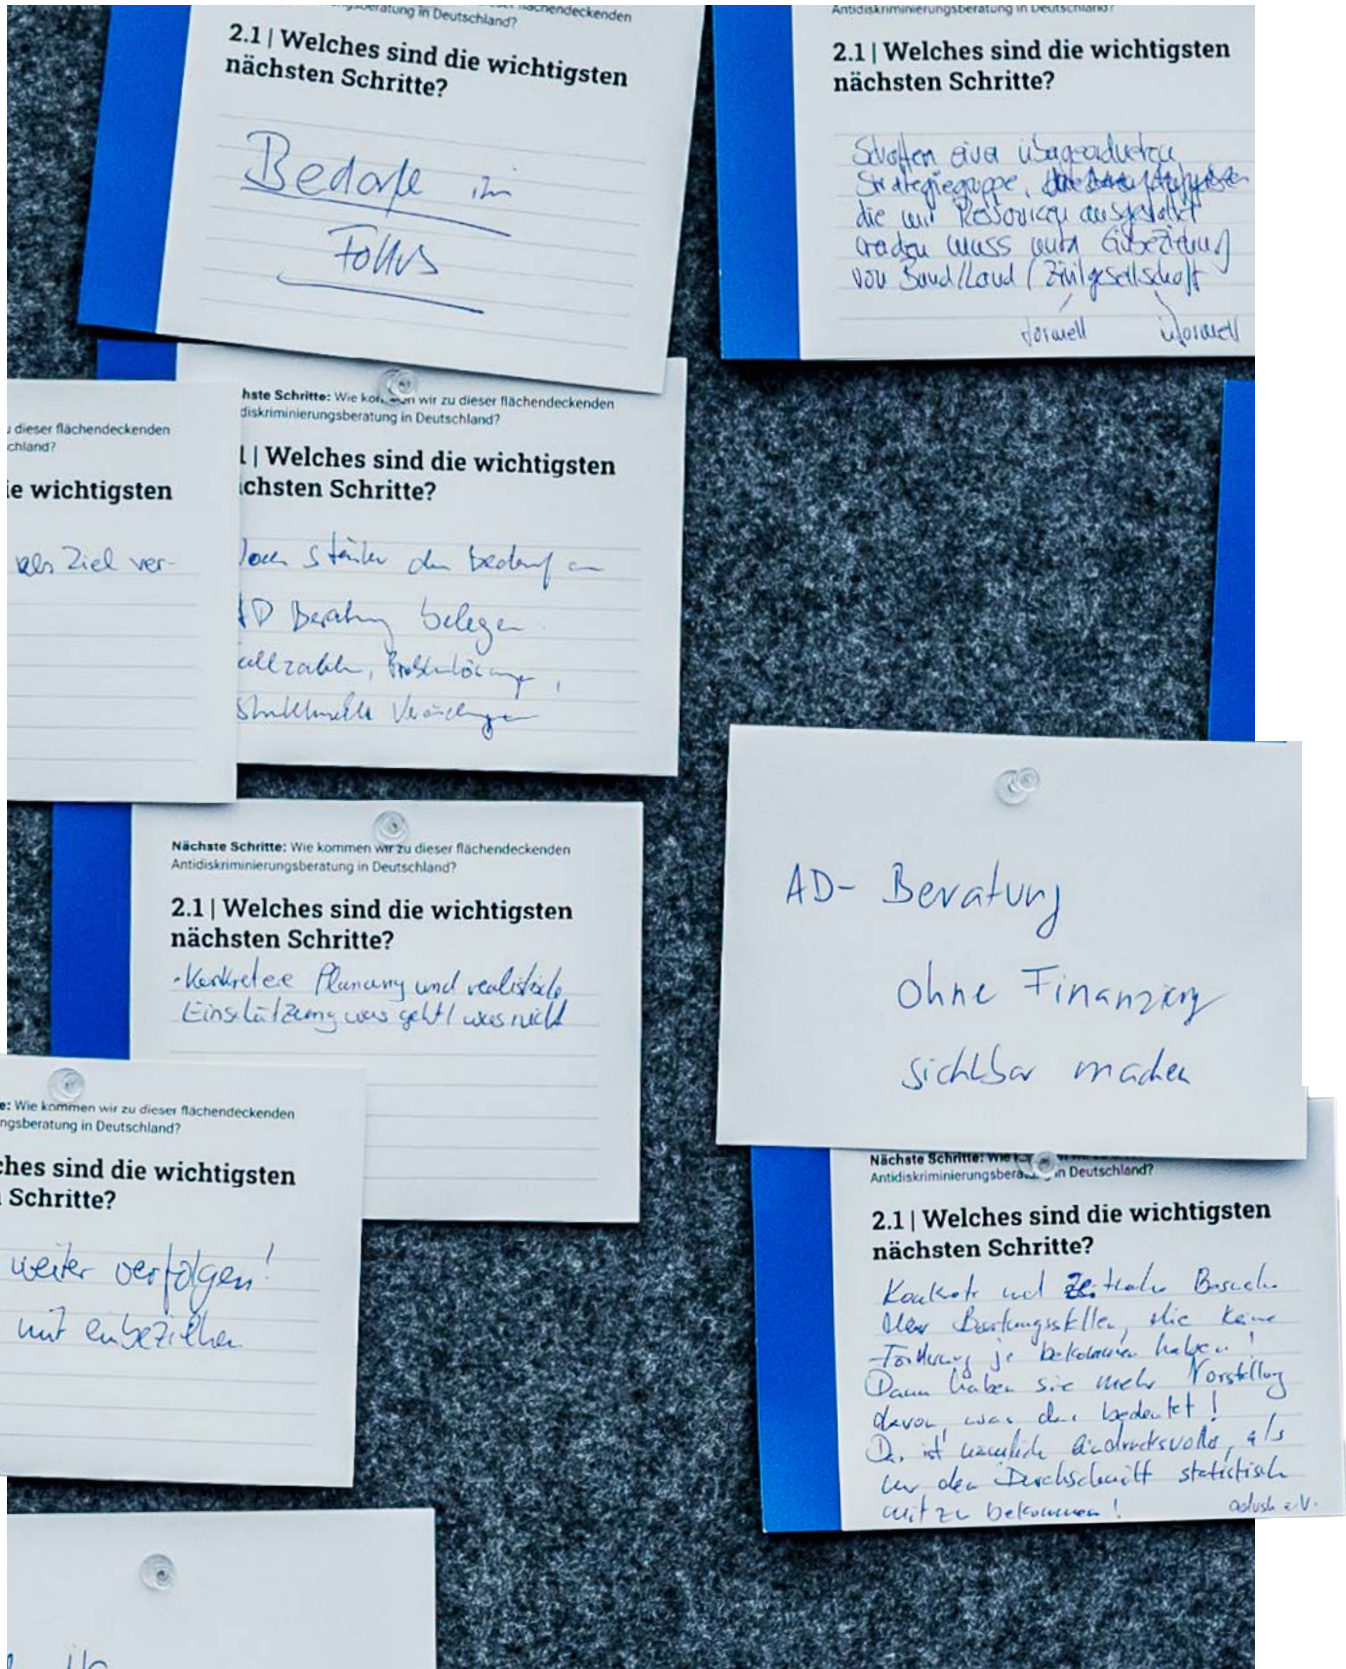 Deutschland?
flächendeckenden
2.1 | Welches sind die wichtigsten
nächsten Schritte?
Bedarfe im
Fokus
Antidiskriminierungsberatung in Deutschland?
2.1 | Welches sind die wichtigsten
nächsten Schritte?
Schaffen einer übergeordneten
Strategiegruppe,
die mit Ressourcen ausgestattet
werden muss unter Einbeziehung
von Bund/Land / Zivilgesellschaft
formell informell
dieser flächendeckenden
chland?
e wichtigsten
als Ziel ver-
hste Schritte: Wie kommen wir zu dieser flächendeckenden
diskriminierungsberatung in Deutschland?
1 | Welches sind die wichtigsten
chsten Schritte?
stärker den bedarf an
AD Beratung belegen
Fallzahlen, Problemlösungen,
strukturelle Veränderungen
Nächste Schritte: Wie kommen wir zu dieser flächendeckenden
Antidiskriminierungsberatung in Deutschland?
2.1 | Welches sind die wichtigsten
nächsten Schritte?
- Konkretere Planung und realistische
Einschätzung was geht / was nicht
AD- Beratung
ohne Finanzierung
sichtbar machen
e: Wie kommen wir zu dieser flächendeckenden
ngsberatung in Deutschland?
ches sind die wichtigsten
Schritte?
weiter verfolgen!
mit einbeziehen
Nächste Schritte: Wie
Antidiskriminierungsbera in Deutschland?
2.1 | Welches sind die wichtigsten
nächsten Schritte?
Konkrete und Besuche
der Beratungsstellen, die keine
Förderung je bekommen haben!
Dann haben sie mehr Vorstellung
davon was das bedeutet!
Das ist nämlich eindrucksvoller, als
nur den Durchschnitt statistisch
mitzubekommen!
e.V.